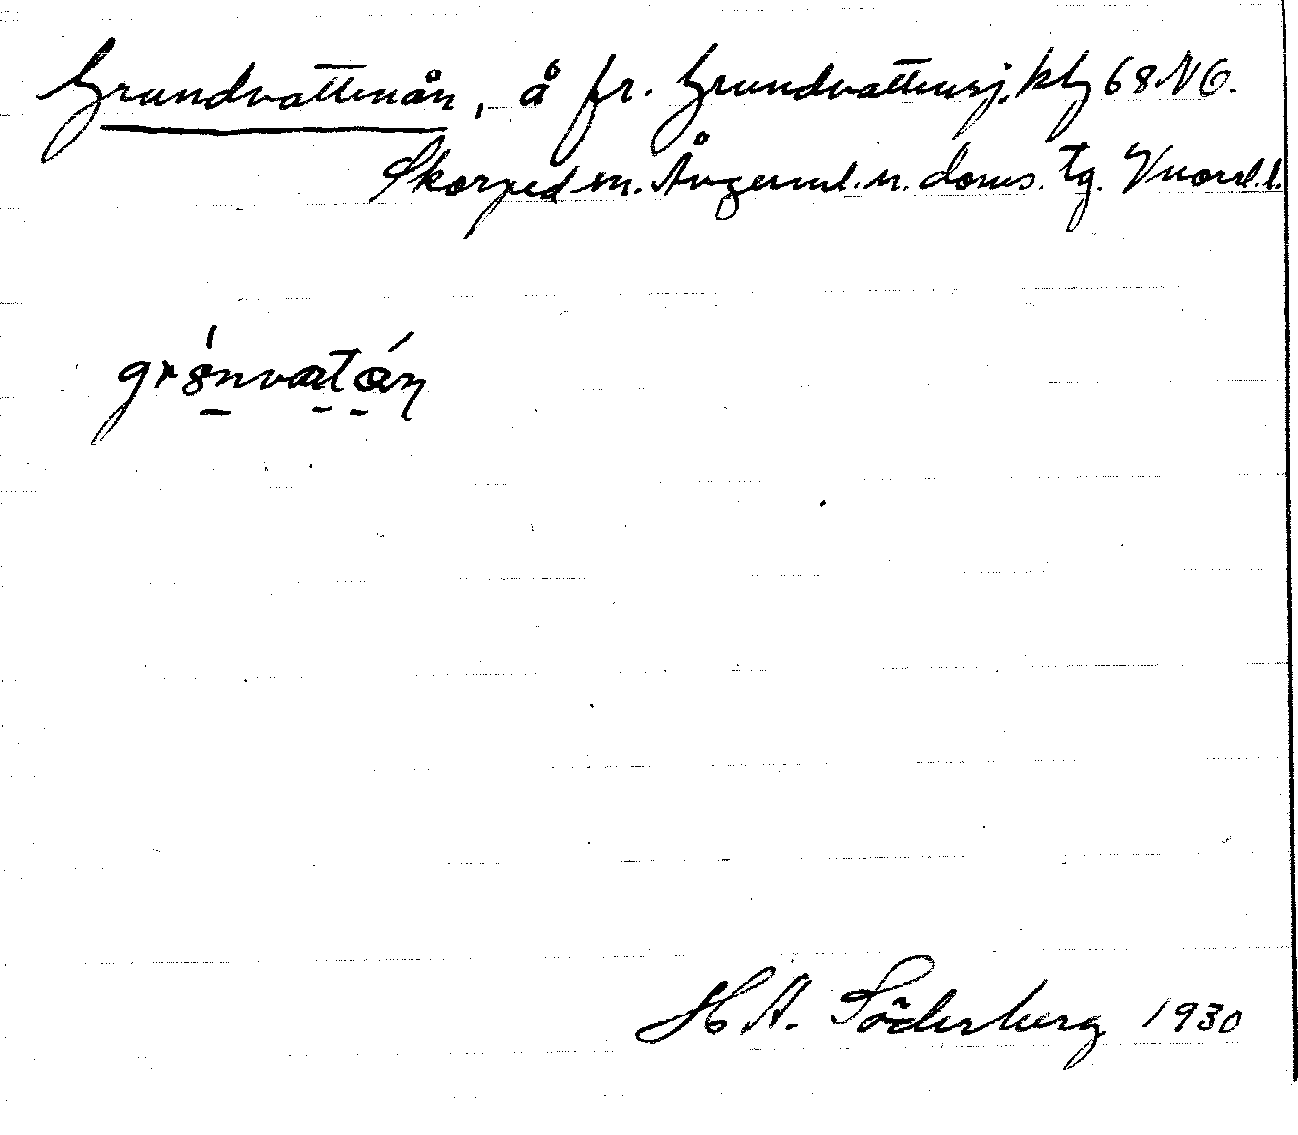 Grundvattenån, å fr. Grundvattensj. kbl 68 NO.
Skorped sn. Ångerml. n. doms. tg. Vnorrl. l.
grȣ́nvatán
H A. Söderberg 1930